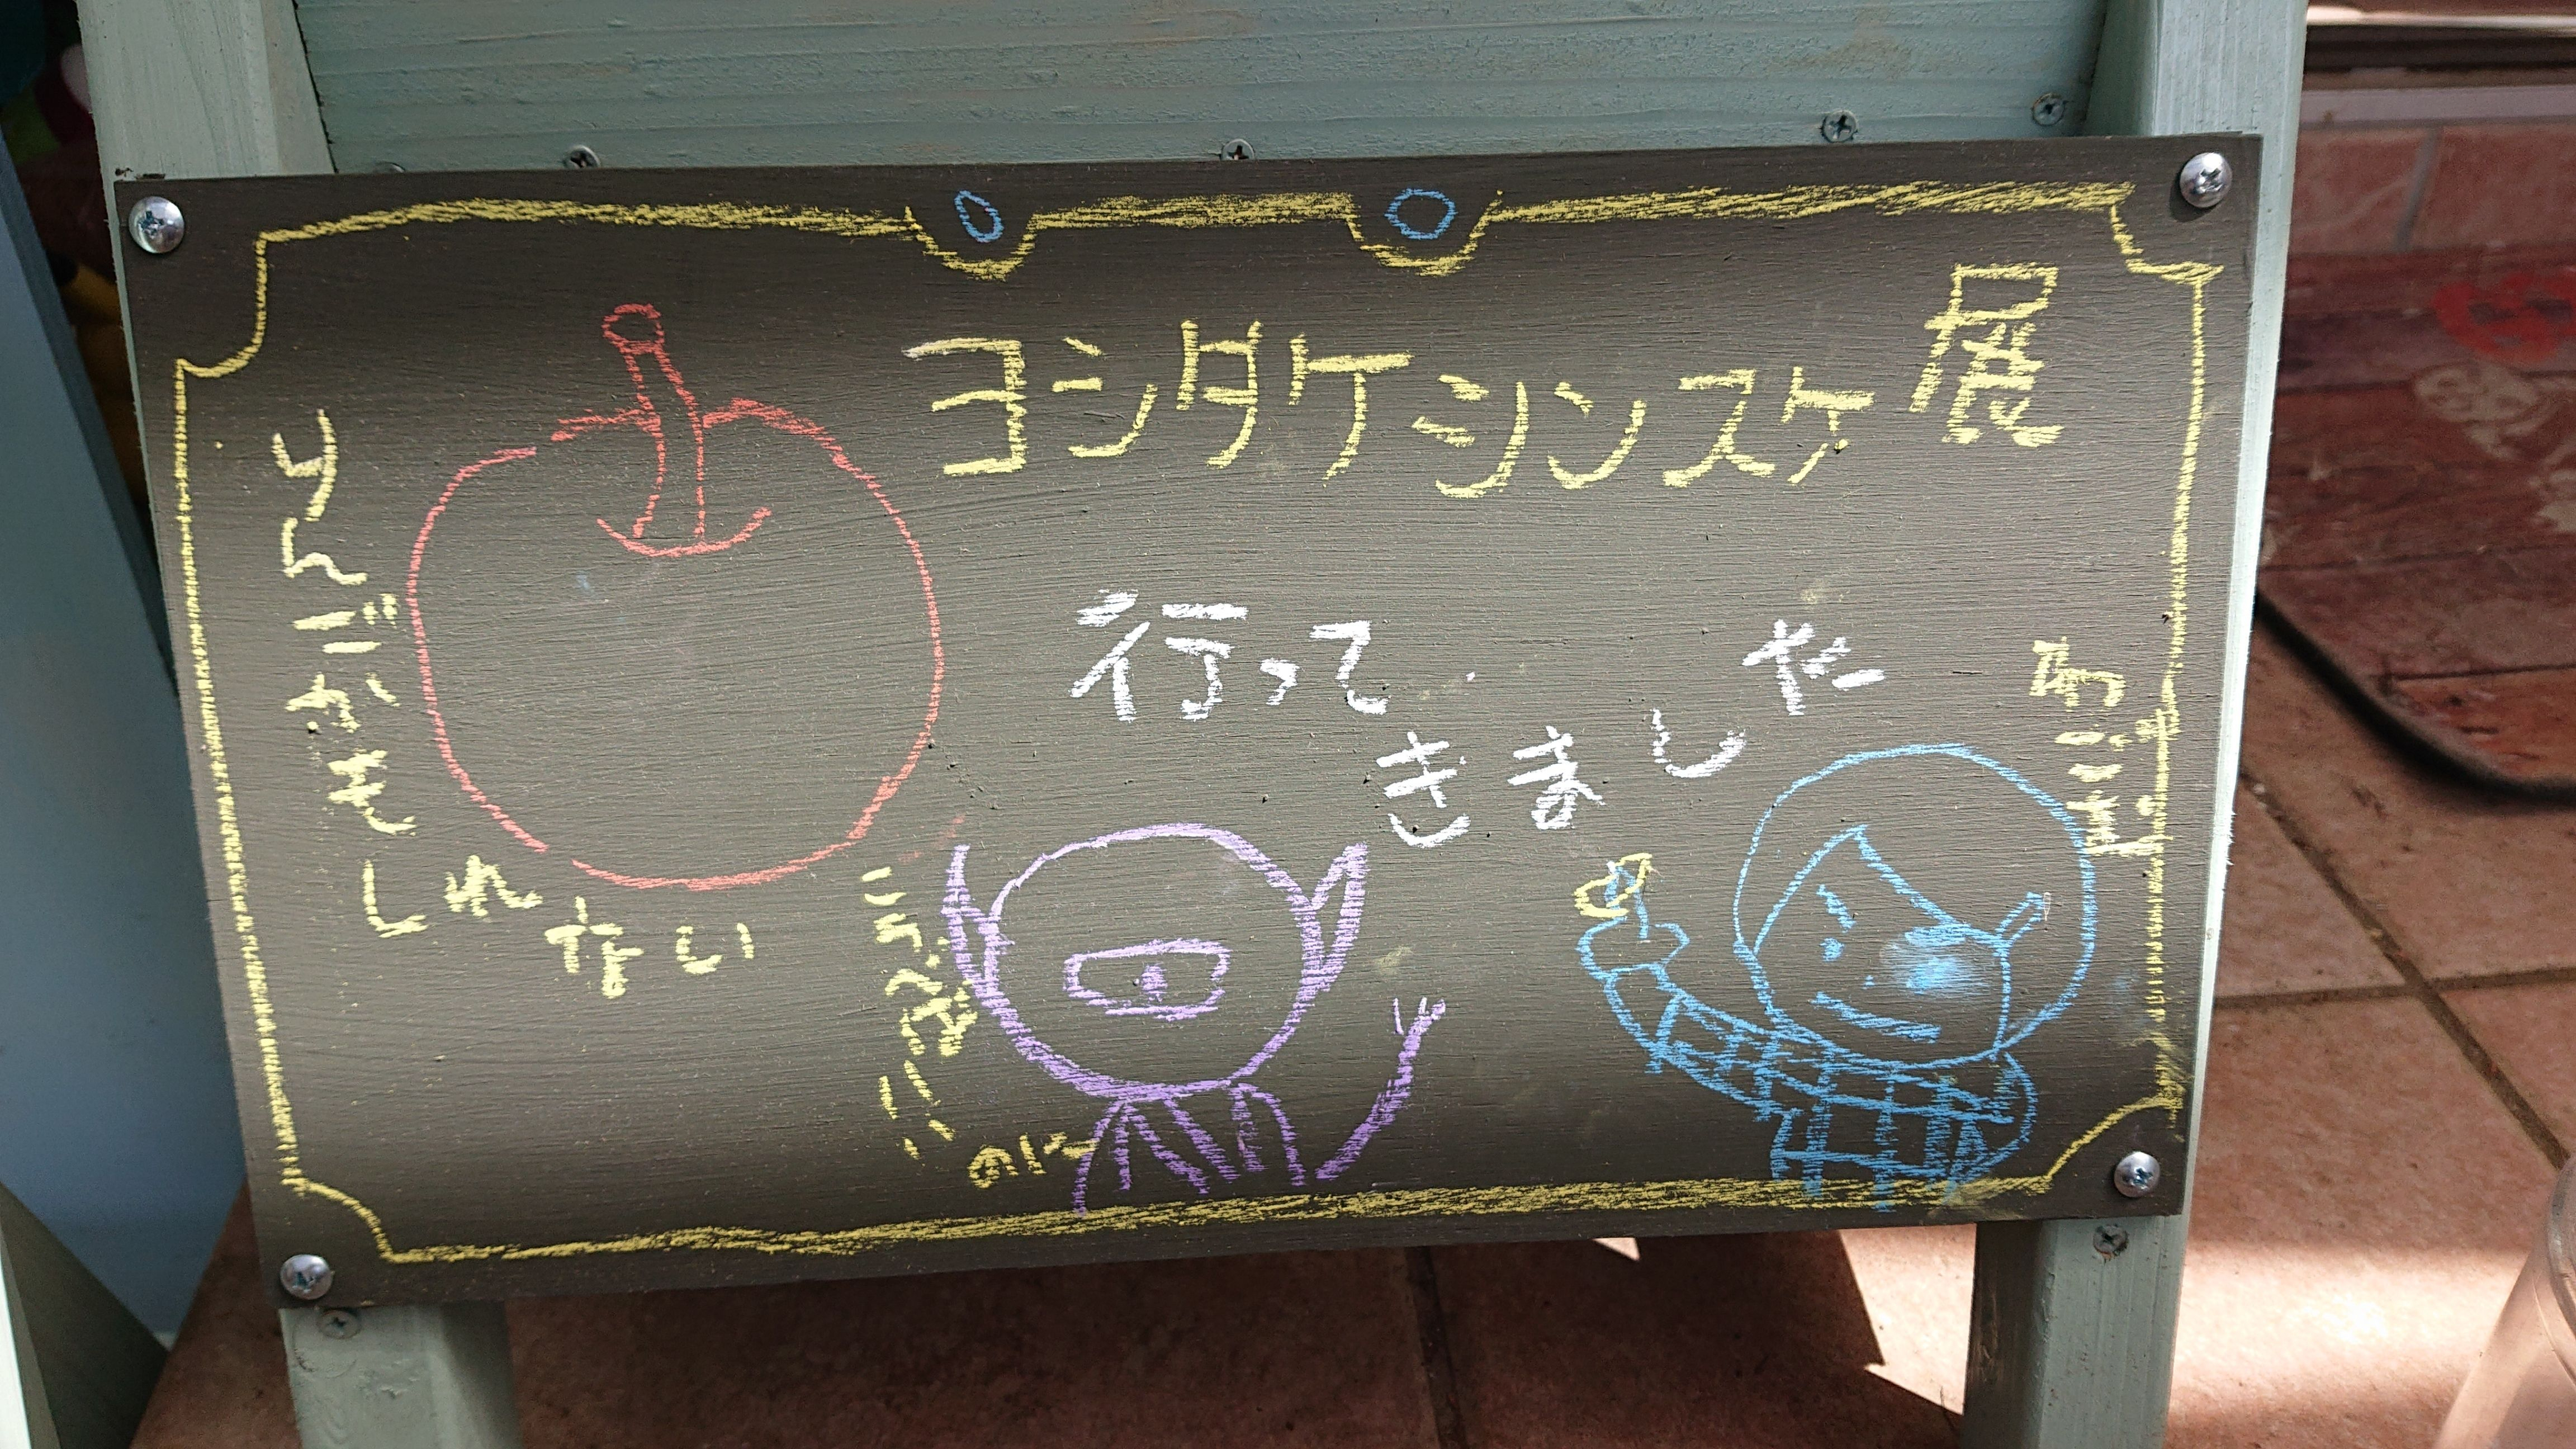 ヨシタケシンスケ展
行って
きました
りんごかもしれない
ころべばいいのに